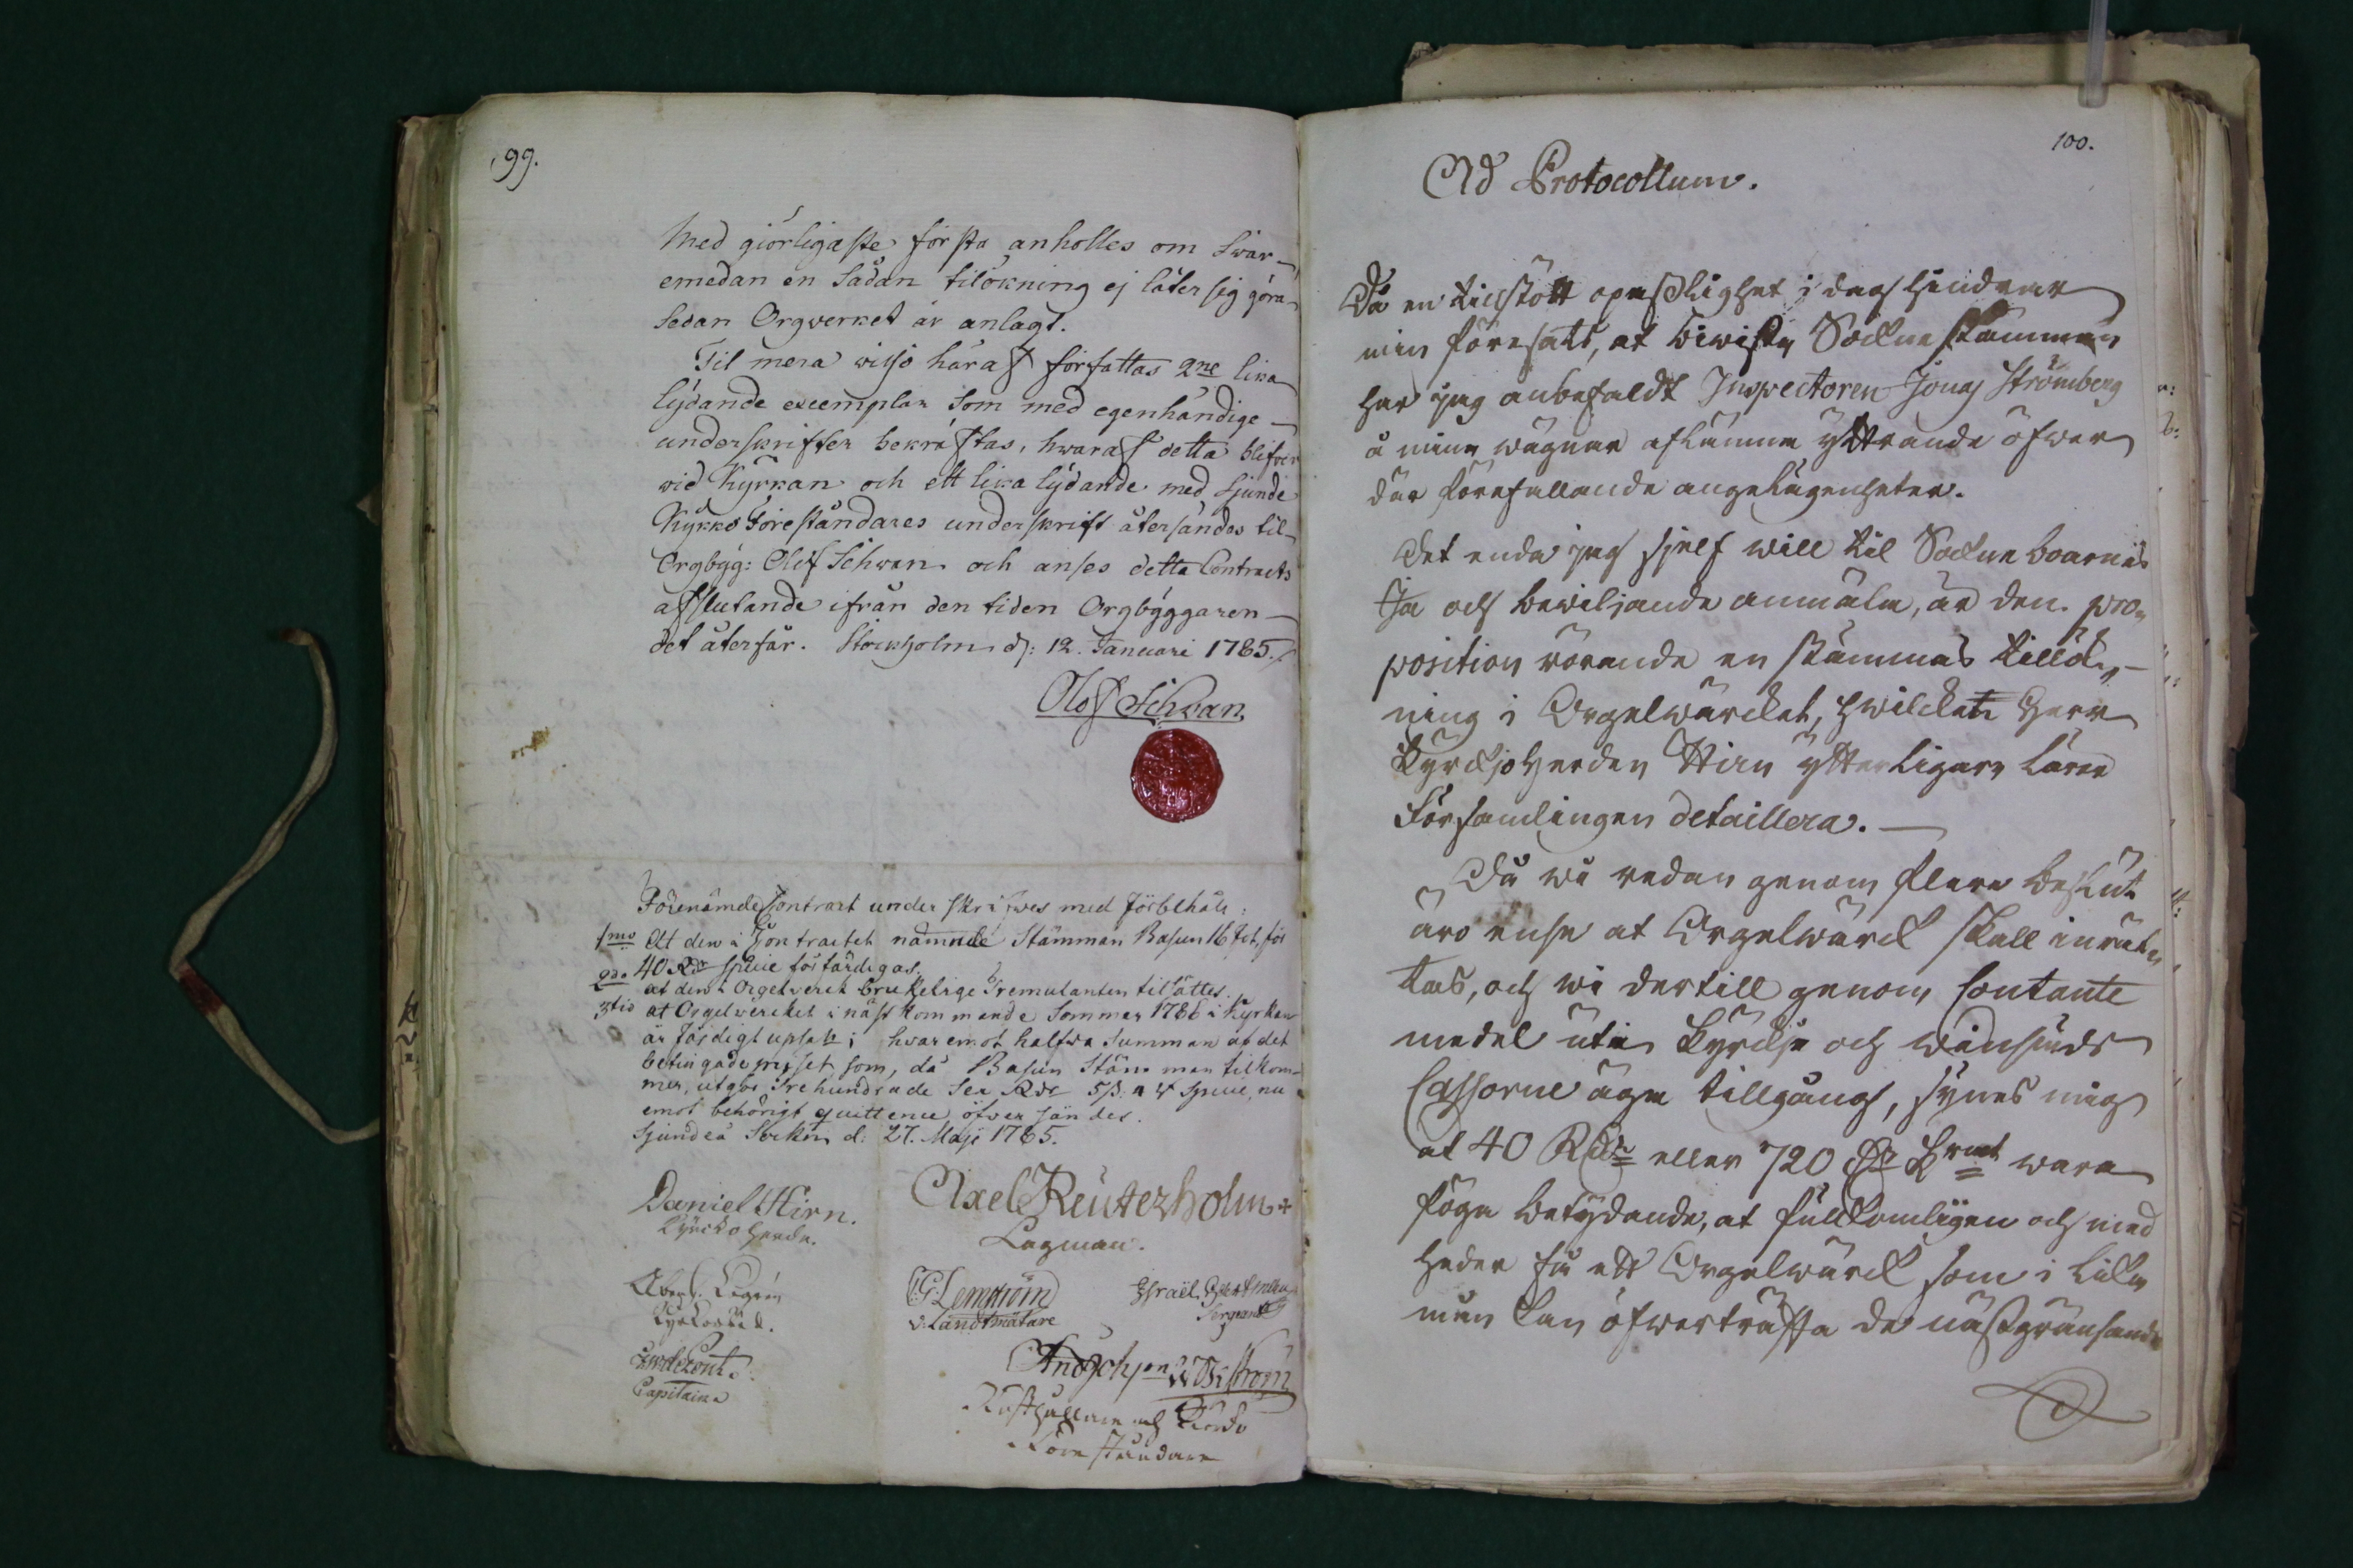 99.
Med giörligaste första anholles om Svar
emedan en Sådan tilökning ej låter sig göra
Sedan Orgverket är anlagt.
Til mera visso häraf författas 2ne lika
lydande exemplar Som med egenhändige
underskrifter bekräftas, hwaraf detta blifver
vid Kyrkan och ett lika lydande med Sjunde
Kyrko Föreståndares underskrift återsändes til
Orgbyg: Olof Schwan och anses detta Contracts
afslutande ifrån den tiden Orgbyggaren
det återfår. Stockholm d: 12. Januari 1785.
Olof Schwan
Förenämde Contract under skrifwes med förbehåll:
1mo At den i Contractet nämnde Stämman Basun 16 fot, för
40 Rdr Specie förfärdigas.
2do at den i Orgelverk brukelige Tremulanten tilsättes.
3tio at Orgelwerket i näst kommande Sommar 1786 i Kyrkan
är färdigt upsatt; hvaremot halfva Summan af det
betingade priset som, då Basun Stämman tilkom-
mer, utgör Trehundrade Sex Rdr 5 ß: 4 r Specie, nu
emot behörigt quittence öfversändes.
Sjundeå Sockn d: 27. Maji 1785.
Daniel Hirn.
Kyrckoherde.
Axel Reuterholm
Lagman.
G Lemström
v: Landtmätare
Israël
Sergeant
Capitaine
And Johson Wiström
Rusthållare och Kyrko
Föreståndare
100.
Ad Protocollum.
Då en tillstött opasslighet i dag hindrar
min föresatts, at biwista Sockne stämman
har jag anbefaldt Inspectoren Jonas Strömberg
å mina wägnar aflämna yttrande öfwer
där förefallande angelägenheter.
Det enda jag sjelf will til Sockne boarnas
Ja och bewiljande anmäla, är den pro-
position rörande en stämmas tillök-
ning i Orgelwärcket, hwilcket Herr
Kyrckjoherden Hirn ytterligare lärer
Församlingen detaillera.
Då wi redan genom flera beslut
äro ense at Orgelwärck skall inrät-
tas, och wi dertill genom Contante
medel uti Kyrckje och winhuds
Cassorne äga tillgång, synes mig
at 40 Rdr eller 720 Dr Krmt wara
föga betydande, at fullkomligen och med
heder få ett Orgelwärck som i lika
mån kan öfwerträffa de nästgränsande